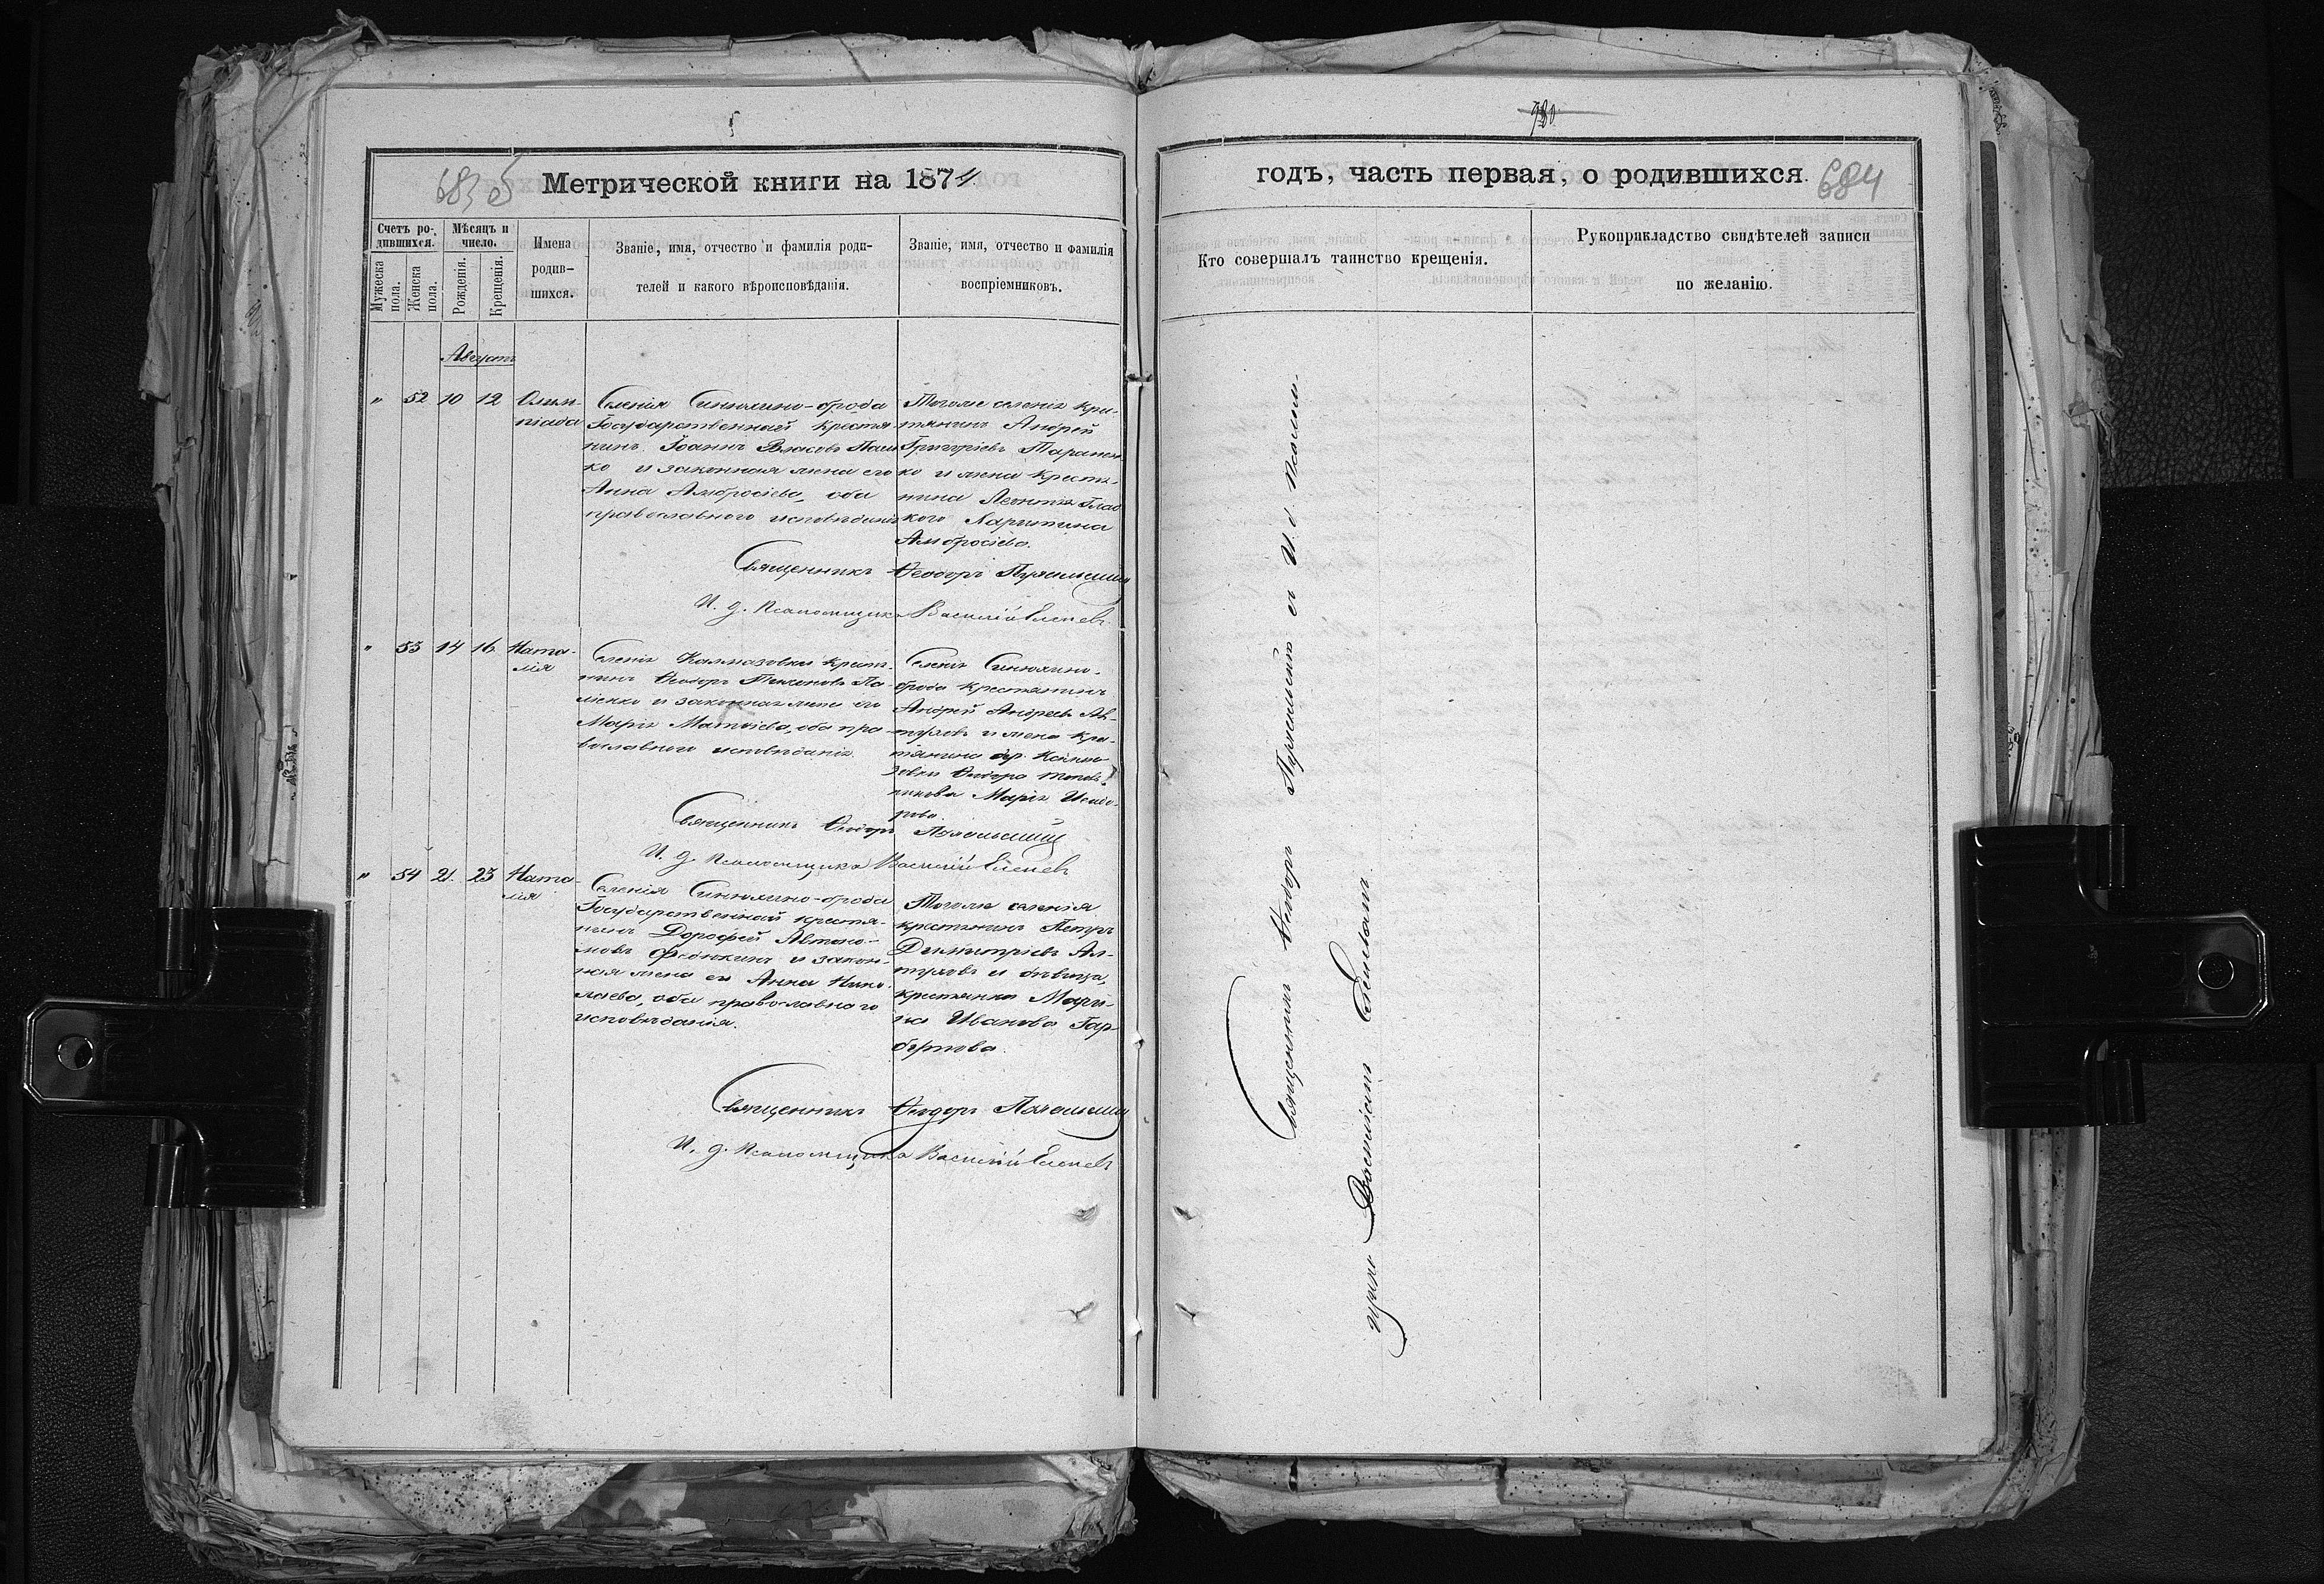 5
683 об
Метрической книги на 1874
Счетъ ро-
дившихся.
Мужеска
пола.
Женска
пола.
Мѣсяцъ и
число.
Рожденія.
Крещенія.
Имена
родив-
шихся.
Званіе, имя, отчество и фамилія роди-
телей и какого вѣроисповѣданія.
Званіе, имя, отчество и фамилія
воспріемниковъ.
Августъ
" 52 10 12
Олим-
піада
Селенія Синюхино-брода
Государственный крестья
нинъ Іоаннъ Власовъ
ко и законная жена его
Анна Амвросіева, оба
православного исповѣданія
Тогоже селенія кре-
тянинъ Андрей
Григоріевъ Таранен
ко и жена крестья-
нина Леонтія Глад
кого Харитина
Амвросіева.
Священникъ Ѳеодоръ
И. д. Псаломщика Василій
" 53 14 16
Ната-
лія
Селенія Калмазовки крест.
нинъ Ѳеодоръ
и законная жена его
Марія Матѳіева, оба пра-
вославного исповѣданія.
Селенія Синюхино-
брода крестьянинъ
Андрей Андреевъ Ал-
туховъ и жена кре-
тянина дер. Калма
зовки Ѳеодора
Марія Исидо-
рова.
Священникъ Ѳеодоръ
И. д. Псаломщика Василій
" 54 21. 23
Ната
лія
Селенія Синюхино-брода
Государственный крестья-
нинъ Дорофей Автоно-
мовъ и закон-
ная жена его Анна Нико-
лаева, оба православнаго
исповѣданія.
Тогоже селенія
крестянинъ Петръ
Димитріевъ Ал-
туховъ и дѣвица,
крестянка Марі-
я Иванова Гар-
бузова.
Священникъ Ѳеодоръ
И. д. Псаломщика Василій
780
годъ, часть первая, о родившихся.
684
Кто совершалъ таинство крещенія.
Рукоприкладство свидѣтелей записи
по желанію.
Священникъ Ѳеодоръ съ И. д. Псалом-
щика Василіемъ